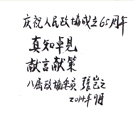 庆祝人民政协成立65周年
真知卓见
献言献策
八届政协委员
2014年9月